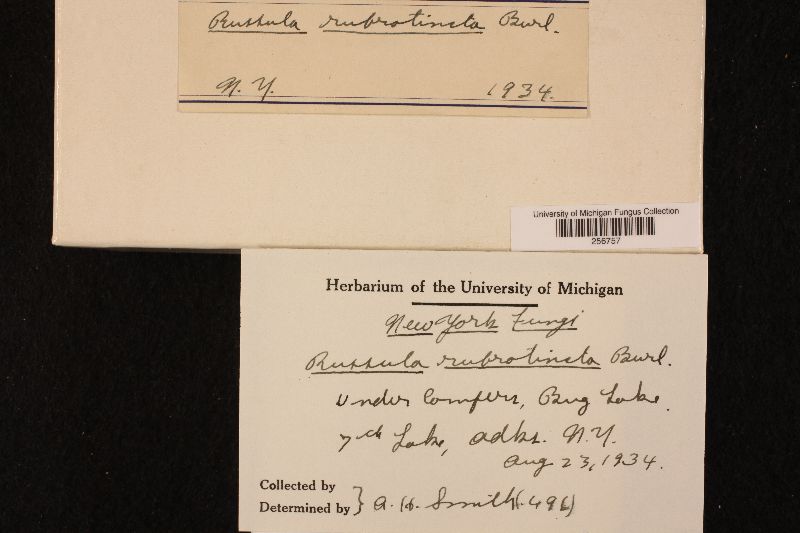 Russula rubrotincta Burl.
N. Y. 1934.
University of Michigan Fungus Collection
256757
Herbarium of the University of Michigan
New York Fungi
Russula rubrotincta Burl.
Under Conifers, Bug Lake.
7th Lake, adks. N.Y.
Aug 23, 1934.
Collected by
Determined by } A. H. Smith (496)